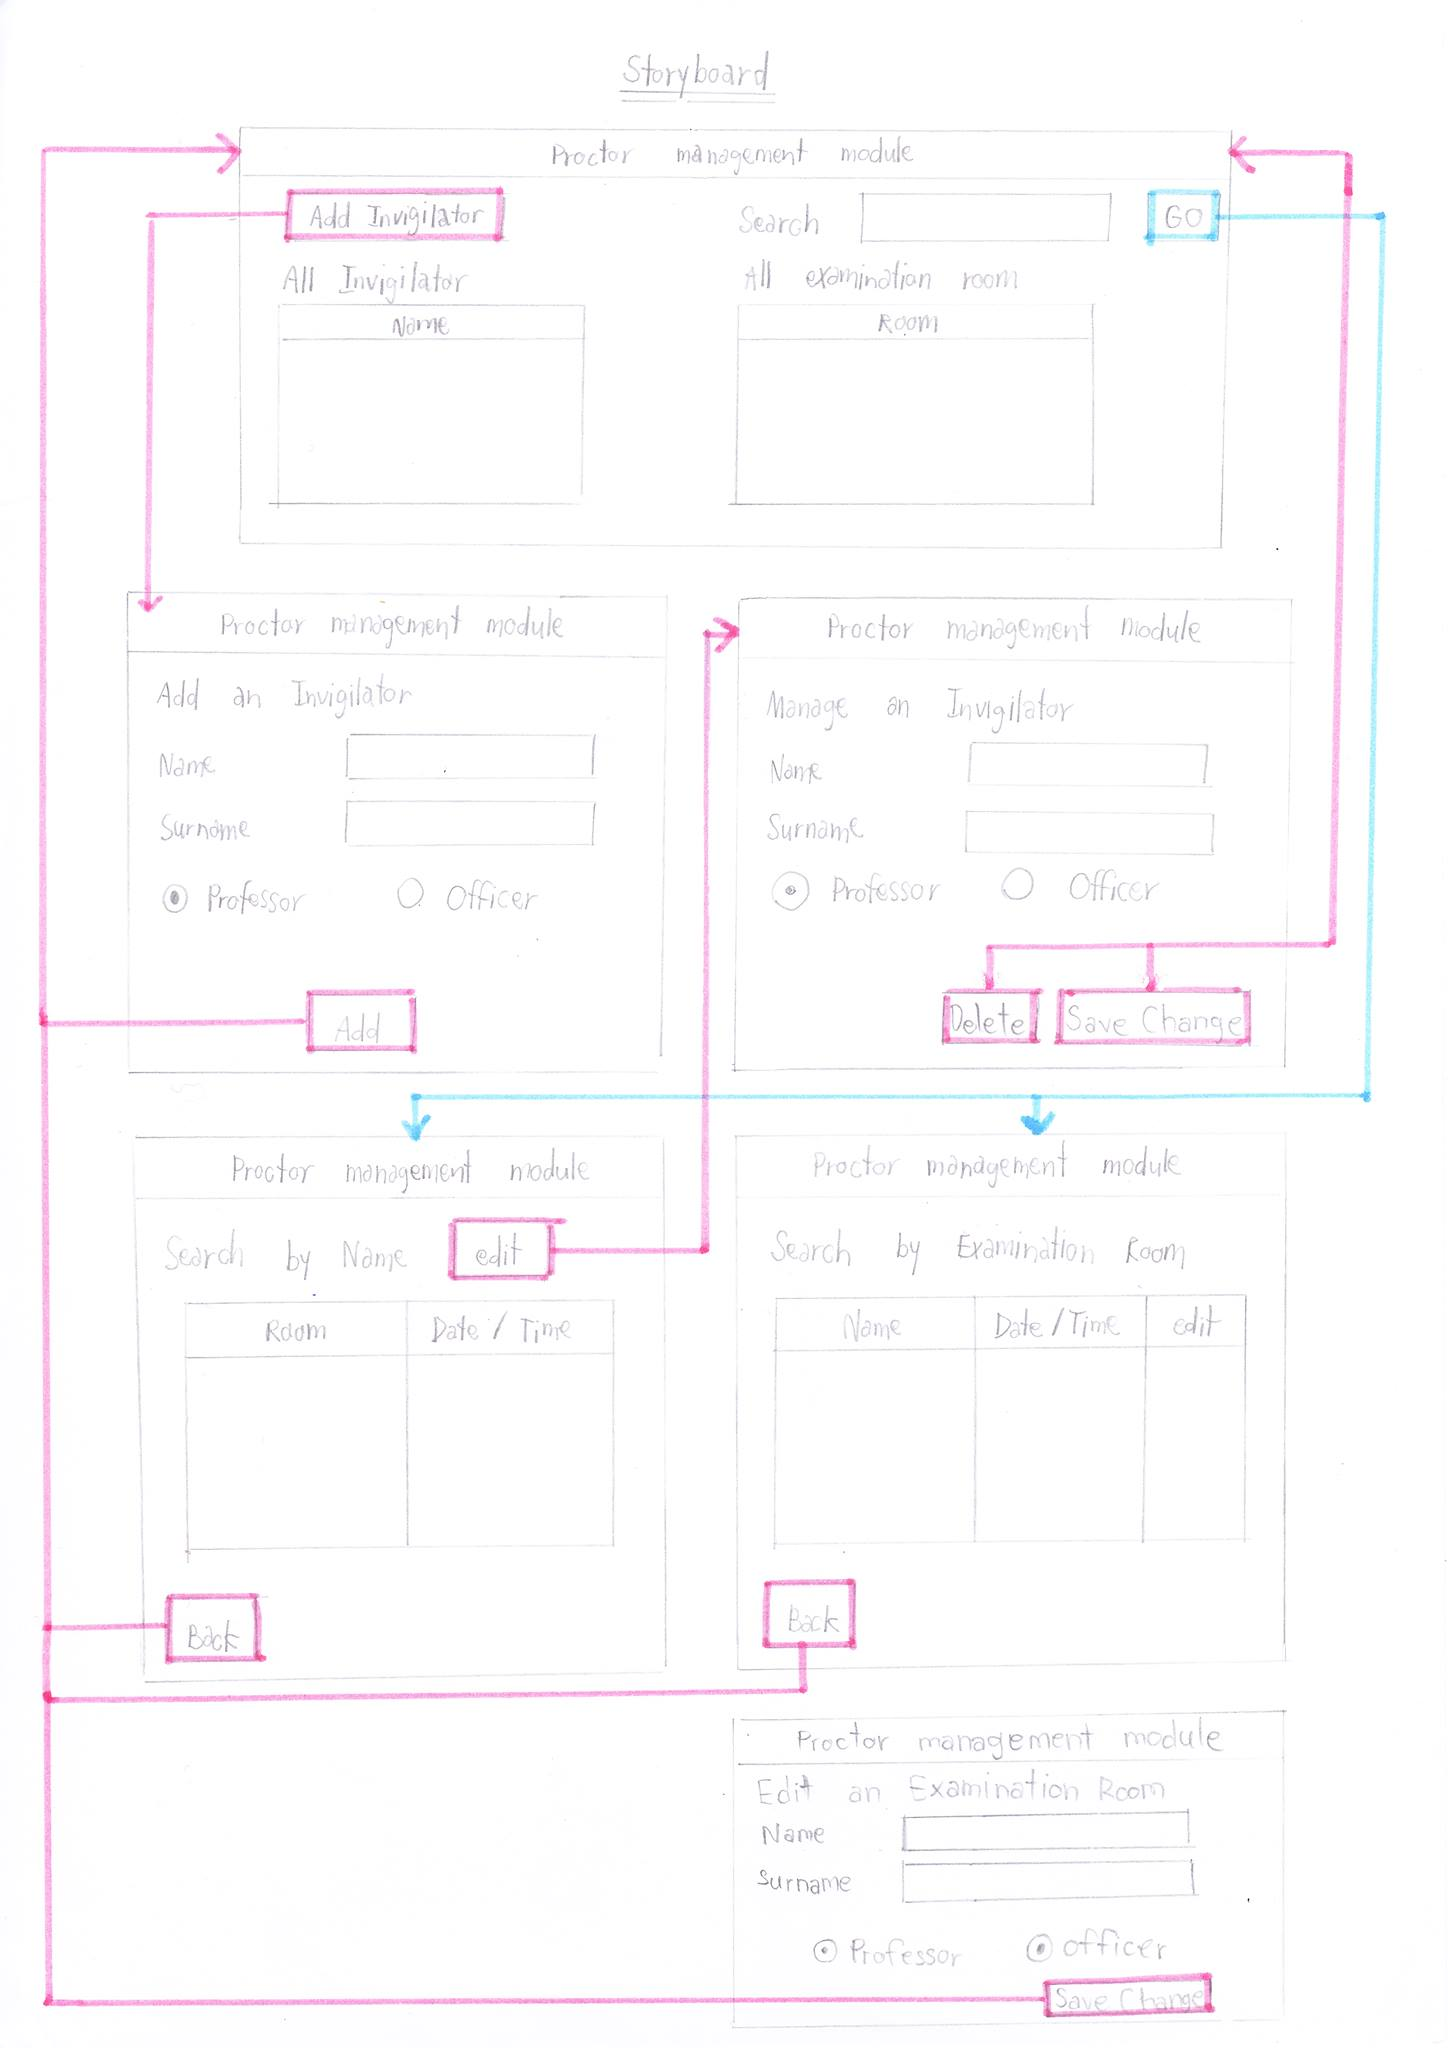 Storyboard
Proctor management module
Add Invigilator
Search
GO
All Invigilator
All examination room
Name
Room
Proctor management module
Add an Invigilator
Name
Surname
Professor
Officer
Add
Proctor management module
Manage an Invigilator
Name
Surname
Professor
Officer
Delete
Save Change
Proctor management module
Search by Name
edit
Room
Date / Time
Back
Proctor management module
Search by Examination Room
Name
Date / Time
edit
Back
Proctor management module
Edit an Examination Room
Name
Surname
Professor
officer
Save Change